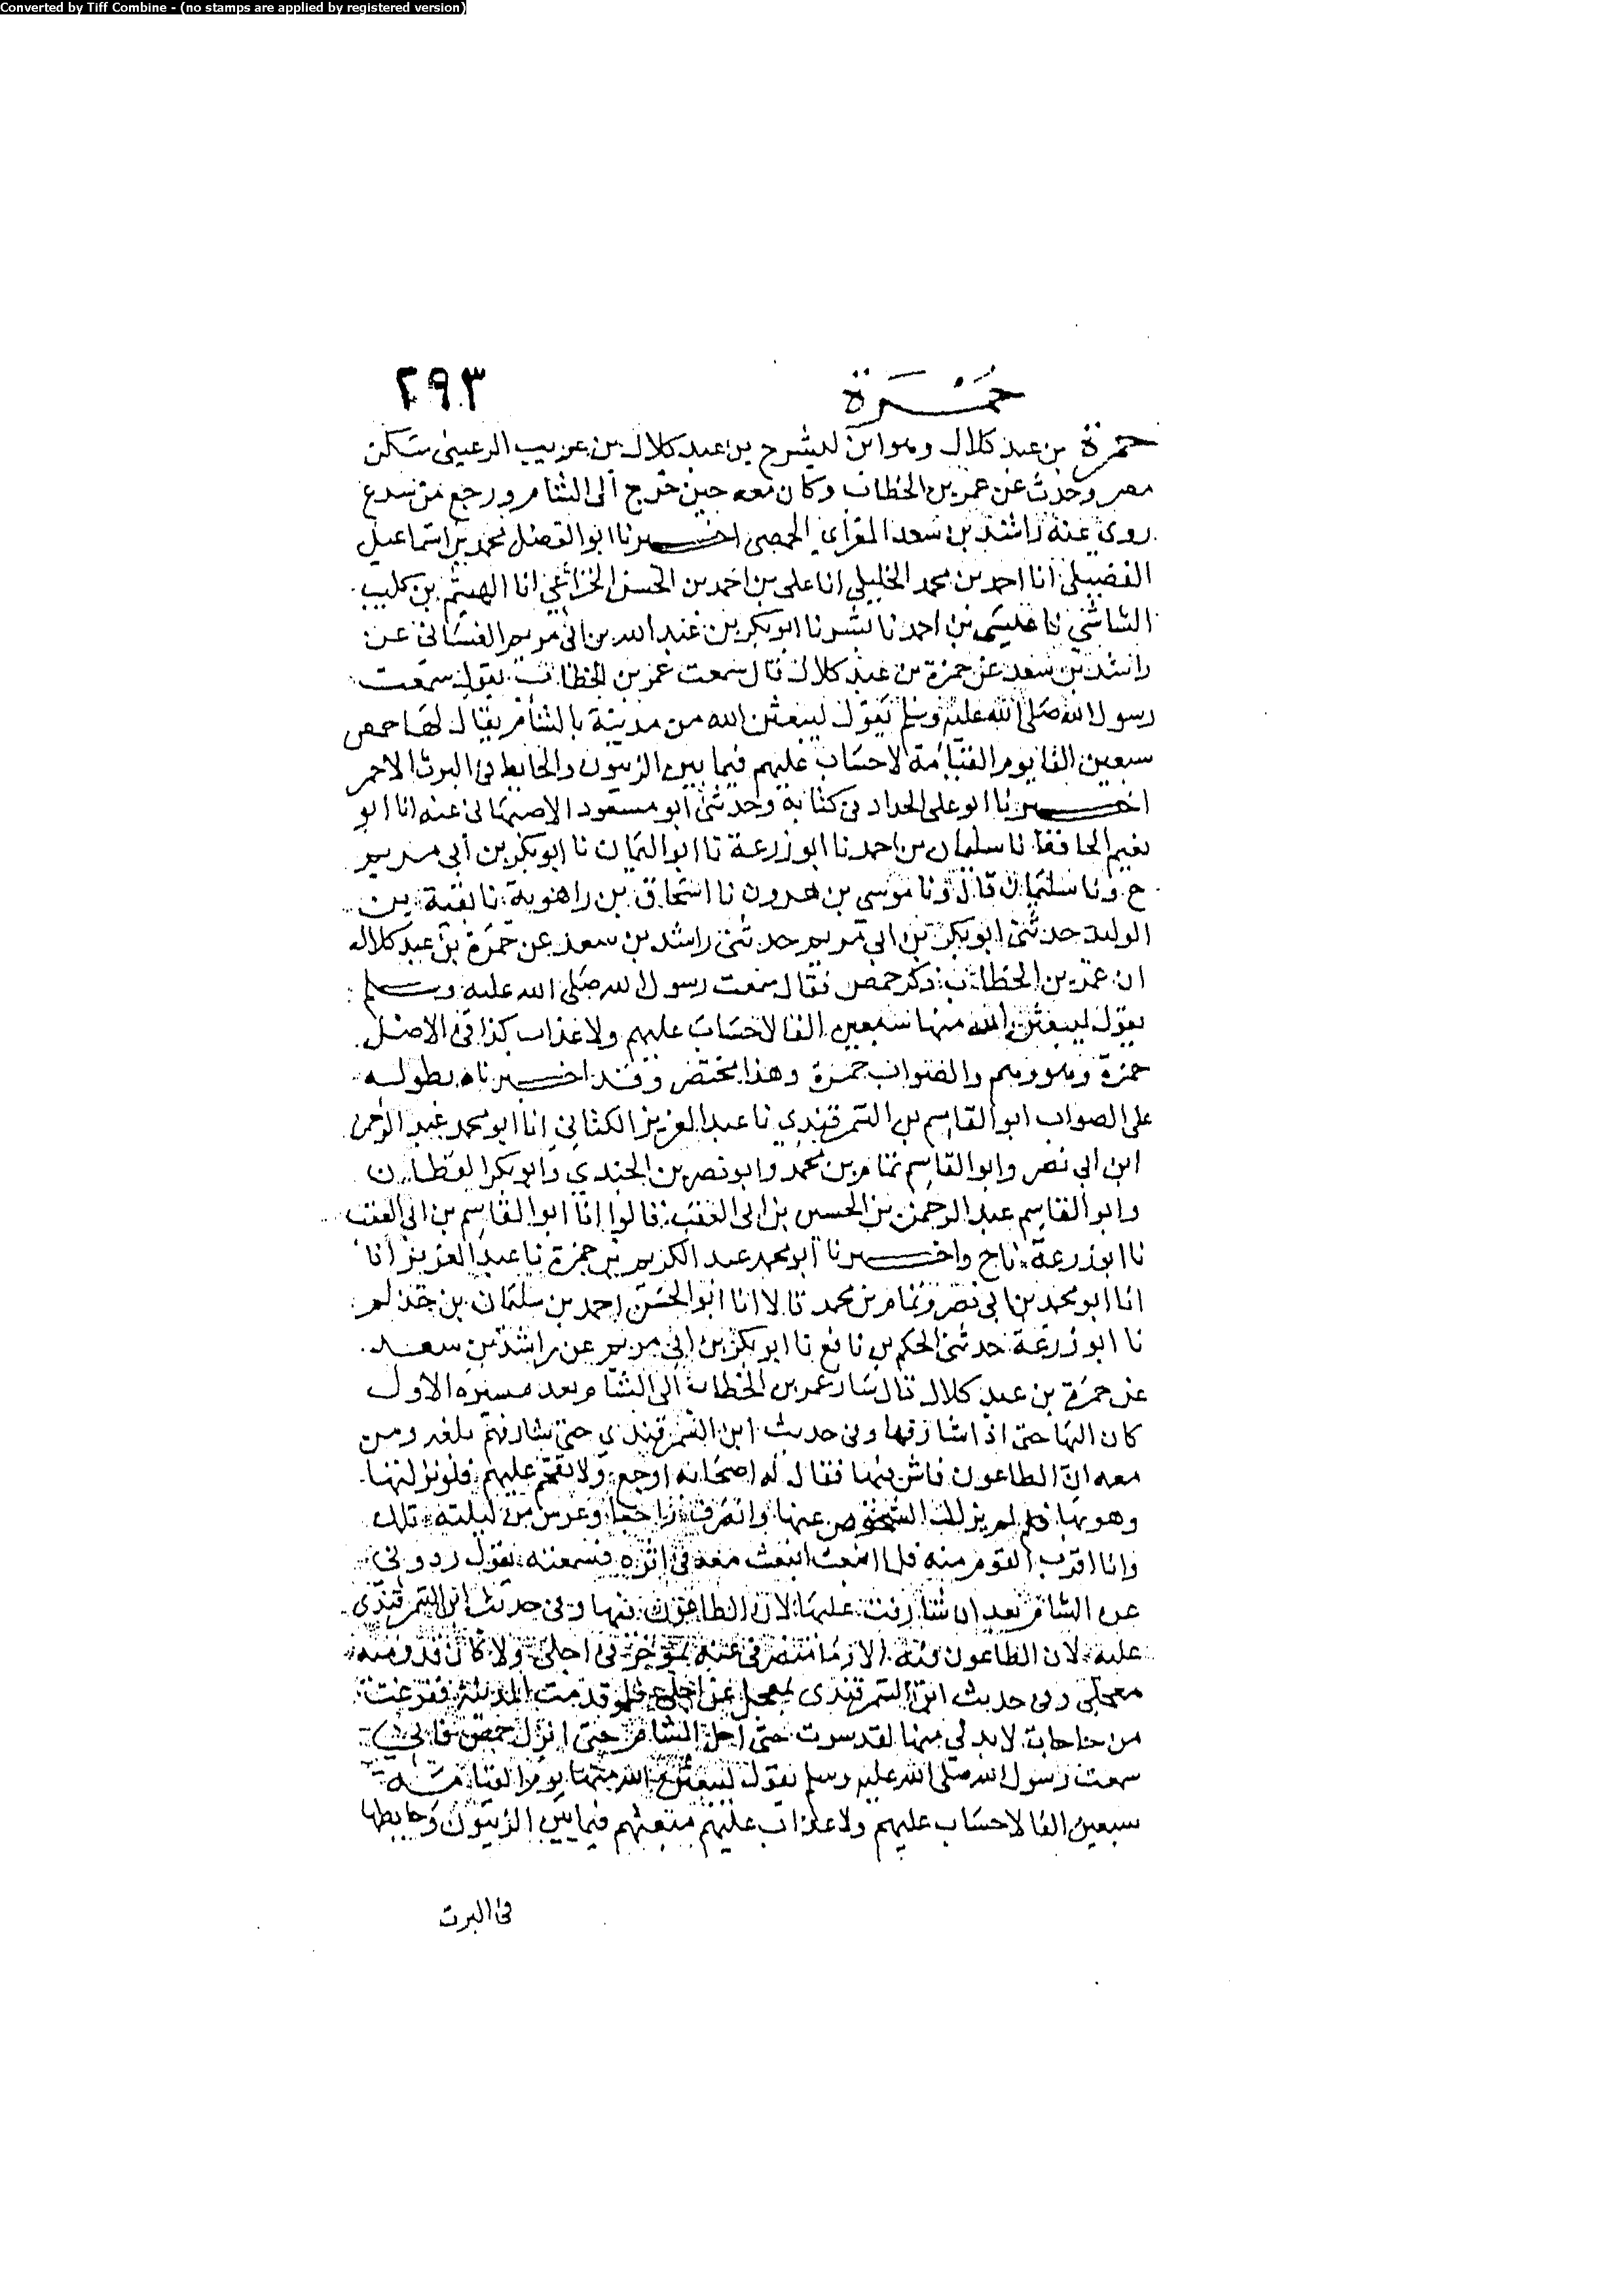 Converted by Tiff Combine - (no stamps are applied by registered version)
حمرة ٢٩٣
حمرة بن عبد كلال وهو ابن ليشرح بن عبد كلال بن عريب الرعينى سكن
مصر وحدث عن عمر بن الخطاب وكان معه حين خرج الى الشام ورجع من سرع
روى عنه راشد بن سعد المقرأي الحمصى اخبرنا ابو الفضل محمد بن اسماعيل
الفضيلى انا احمد بن محمد الخليلى انا على بن احمد بن الحسن الخزاعي انا الهيثم بن كليب
الشاشي نا عيسى بن احمد نا بشر نا ابو بكر بن عبد الله بن ابى مريم الغسانى عن
راشد بن سعد عن حمزة بن عبد كلال قال سمعت عمر بن الخطاب يقول سمعت
رسول الله صلى الله عليه وسلم يقول ليبعثن الله من مدينة بالشام يقال لها حمص
سبعين الفا يوم القيامة لا حساب عليهم فيما بين الزيتون والحايط فى البرث الاحمر
اخبرنا ابو على الحداد فى كتابه وحدثنى ابو مسعود الاصبهانى عنه انا ابو
نعيم الحافظ نا سليمان بن احمد نا ابو زرعة نا ابو اليمان نا ابو بكر بن أبي مريم
ح ونا سليمان قال ونا موسى بن هرون نا اسحاق بن راهوية نا بقية بن
الوليد حدثنى ابو بكر بن ابى مريم حدثنى راشد بن سعد عن حمزة بن عبد كلال
ان عمر بن الخطاب ذكر حمص فقال سمعت رسول الله صلى الله عليه وسلم
يقول ليبعثن الله منها سبعين الفا لا حساب عليهم ولا عذاب كذا فى الاصل
حمزة وهو وهم والصواب حمرة وهذا مختصر وقد اخبرناه بطوله
على الصواب ابو القاسم بن السمرقندي نا عبد العزيز الكتاني انا ابو محمد عبد الرحمن
ابن ابى نصر وابو القاسم تمام بن محمد وابو نصر بن الجندي وابو بكر القطان
وابو القاسم عبد الرحمن بن الحسين بن ابى العقب قالوا انا ابو القاسم بن ابى العقب
نا ابو زرعة نا ح واخبرنا ابو محمد عبد الكريم بن حمزة نا عبد العزيز أنا
انا ابو محمد بن ابى نصر وتمام بن محمد قالا انا ابو الحسن احمد بن سليمان بن حذلم
نا ابو زرعة حدثنى الحكم بن نافع نا ابو بكر بن ابى مريم عن راشد بن سعد
عن حمرة بن عبد كلال قال سار عمر بن الخطاب الى الشام بعد مسيره الاول
كان اليها حتى اذا شارفها وفى حديث ابن السمرقندي حتى شارفهم بلغه ومن
معه ان الطاعون فاش فيها فقال له اصحابه ارجع ولا تقحم عليهم فلو نزلتها
وهو بها لم نر لك الشخوص عنها وانصرف راجعا وعرس من ليلته تلك
وانا اقرب القوم منه فلما انبعث انبعث معه فى اثره فسمعته يقول ردونى
عن الشام بعد ان شارفت عليها لان الطاعون فيها وفى حديث ابن السمرقندى
عليه لان الطاعون فيه الا وما منصرفى عنه بمؤخر فى اجلى ولا كان قدومنيه
معجلى وفى حديث ابن السمرقندى بمعجل عن اجلى فلو قدمت المدينة ففرغت
من حاجات لابد لى منها لقد سرت حتى احل الشام حتى انزل حمص فانى
سمعت رسول الله صلى الله عليه وسلم يقول ليبعثن الله منها يوم القيامة
سبعين الفا لا حساب عليهم ولا عذاب عليهم مبعثهم فيما بين الزيتون وحايطها
فى البرث